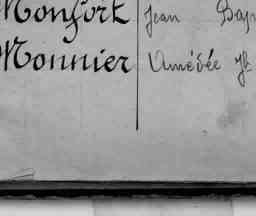 Monfort Jean Bap
Monnier Amédée